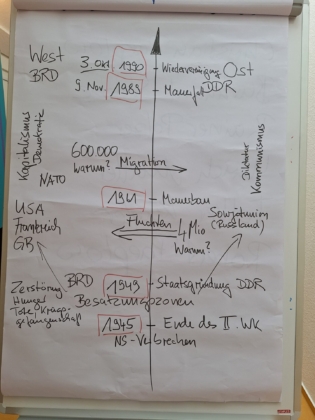 West
BRD
3. Okt 1990 Wiedervereinigung Ost
9. Nov. 1989 Mauerfall DDR
Kapitalismus
Demokratie
Diktatur
Kommunismus
600 000
Warum? Migration
NATO
1961 Mauerbau
USA
Frankreich
GB
Sowjetunion
(Russland)
Fluchten 4 Mio
Warum?
BRD 1949 Staatsgründung DDR
Zerstörung
Hunger
Tote, Kriegs-
gefangenschaft
Besatzungszonen
1945 Ende des II. WK
NS-Verbrechen